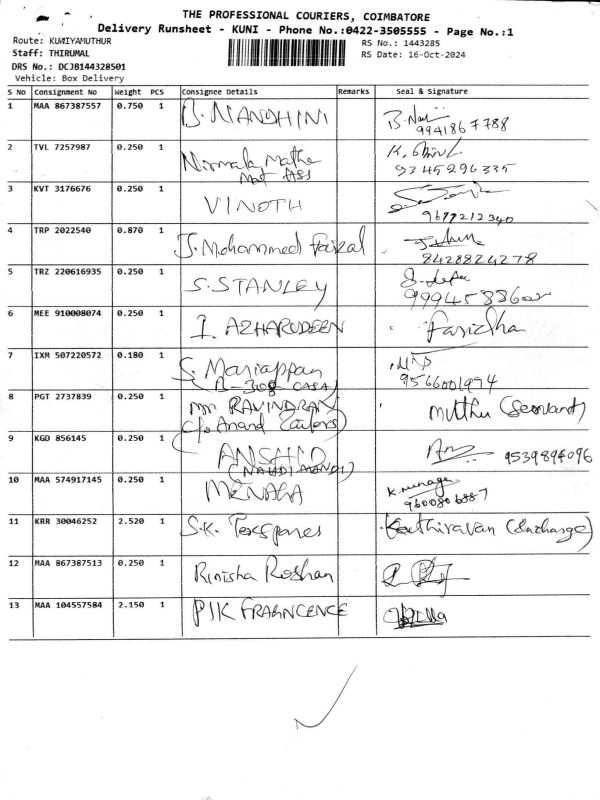 THE PROFESSIONAL COURIERS, COIMBATORE
Delivery Runsheet - KUNI - Phone No.:0422-3505555 - Page No.:1
Route: KUNIYAMUTHUR
RS No.: 1443285
Staff: THIRUMAL
RS Date: 16-Oct-2024
DRS No.: DCJB144328501
Vehicle: Box Delivery
S No Consignment No Weight PCS Consignee Details Remarks Seal & Signature
1 MAA 867387557 0.750 1 B. NANDHINI
9941867788
2 TVL 7257987 0.250 1 Nirmala Matha
Mat Hss
9345296335
3 KVT 3176676 0.250 1 VINOTH
9677212340
4 TRP 2022540 0.870 1 J. Mohammed Faizal
8428824278
5 TRZ 220616935 0.250 1 S. STANLEY
6 MEE 910008074 0.250 1 I. AZHARUDEEN Faridha
7 IXM 507220572 0.180 1 S. Mariappan
9566001974
8 PGT 2737839 0.250 1 Mr RAVINDRAN Muthu (Servant)
C/o Anand Tailors)
9 KGD 856145 0.250 1 ANSHID 9539894096
10 MAA 574917145 0.250 1 MENAGA K. menaga
9600806887
11 KRR 30046252 2.520 1 S.K. Texspares Kathiravan (Incharge)
12 MAA 867387513 0.250 1 Rinisha Roshan
13 MAA 104557584 2.150 1 PIK FRAGNCENCE